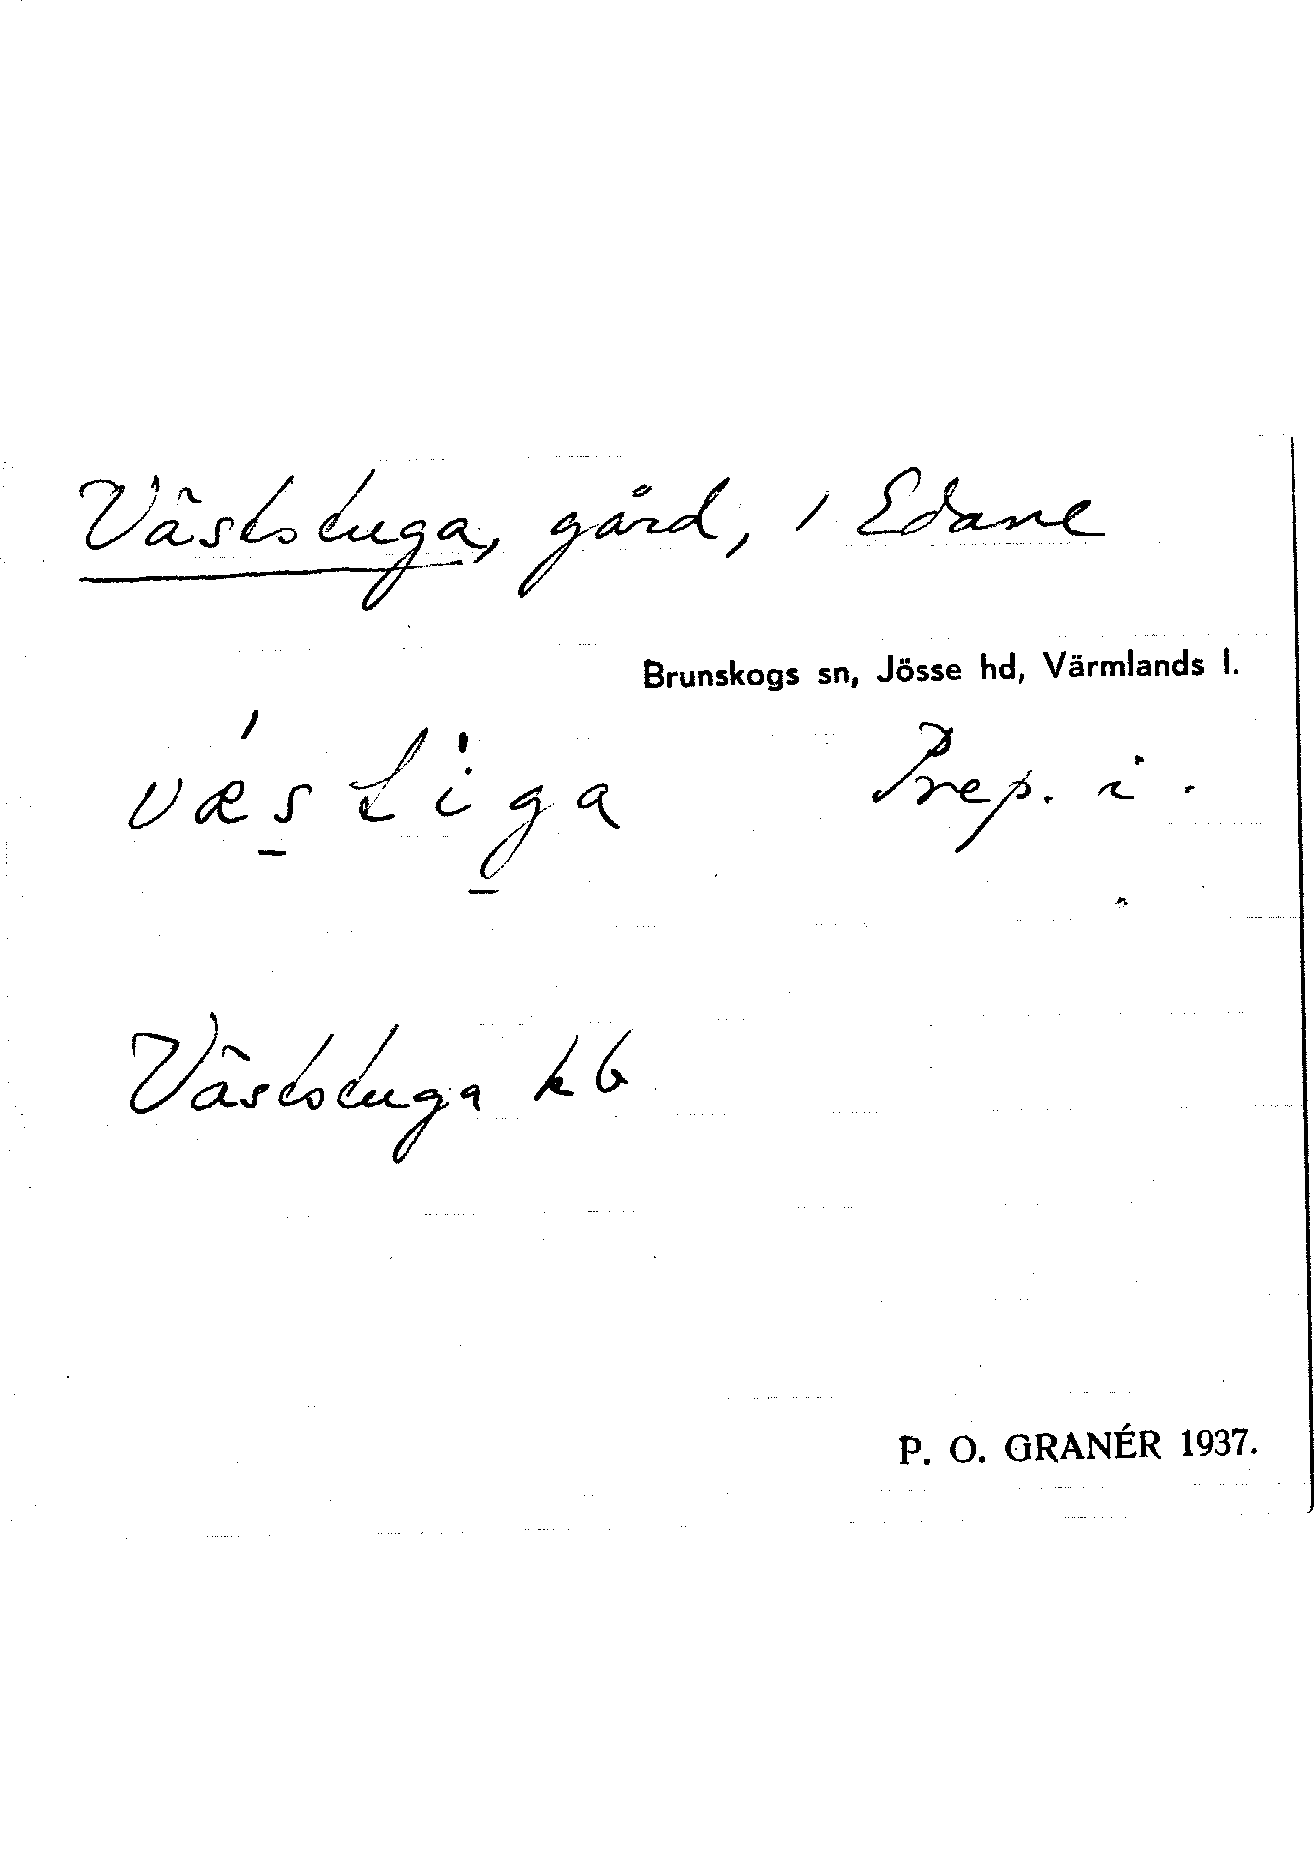 Väststuga, gård, i Edane
Brunskogs sn, Jösse hd, Värmlands l.
vǽstiga Prep. i.
Väststuga kb
P. O. GRANÉR 1937.